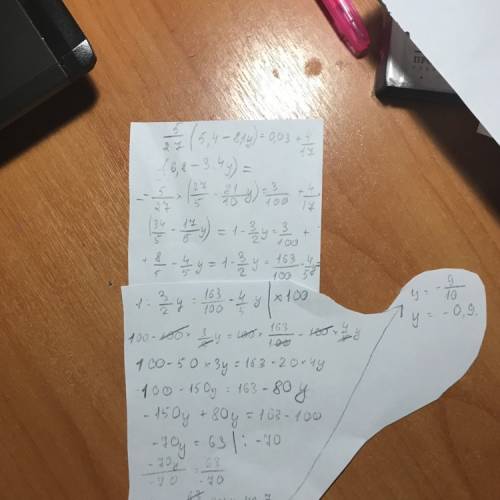 5/27 (5,4 - 8,1y) = 0,03 + 4/17
(6,8 - 3,4y) =
5/27 × (27/5 - 81/10 y) = 3/100 + 4/17
(34/5 - 17/5 y) = 1 - 3/2 y = 3/100 +
+ 8/5 - 4/5 y = 1 - 3/2 y = 163/100 - 4/5 y =
1 - 3/2 y = 163/100 - 4/5 y | × 100
100 - 100 × 3/2 y = 100 × 163/100 - 100 × 4/5 y
100 - 50 × 3y = 163 - 20 × 4y
100 - 150y = 163 - 80y
-150y + 80y = 163 - 100
-70y = 63 | : -70
-70y/-70 = 63/-70
y = - 9/10
y = - 0,9.